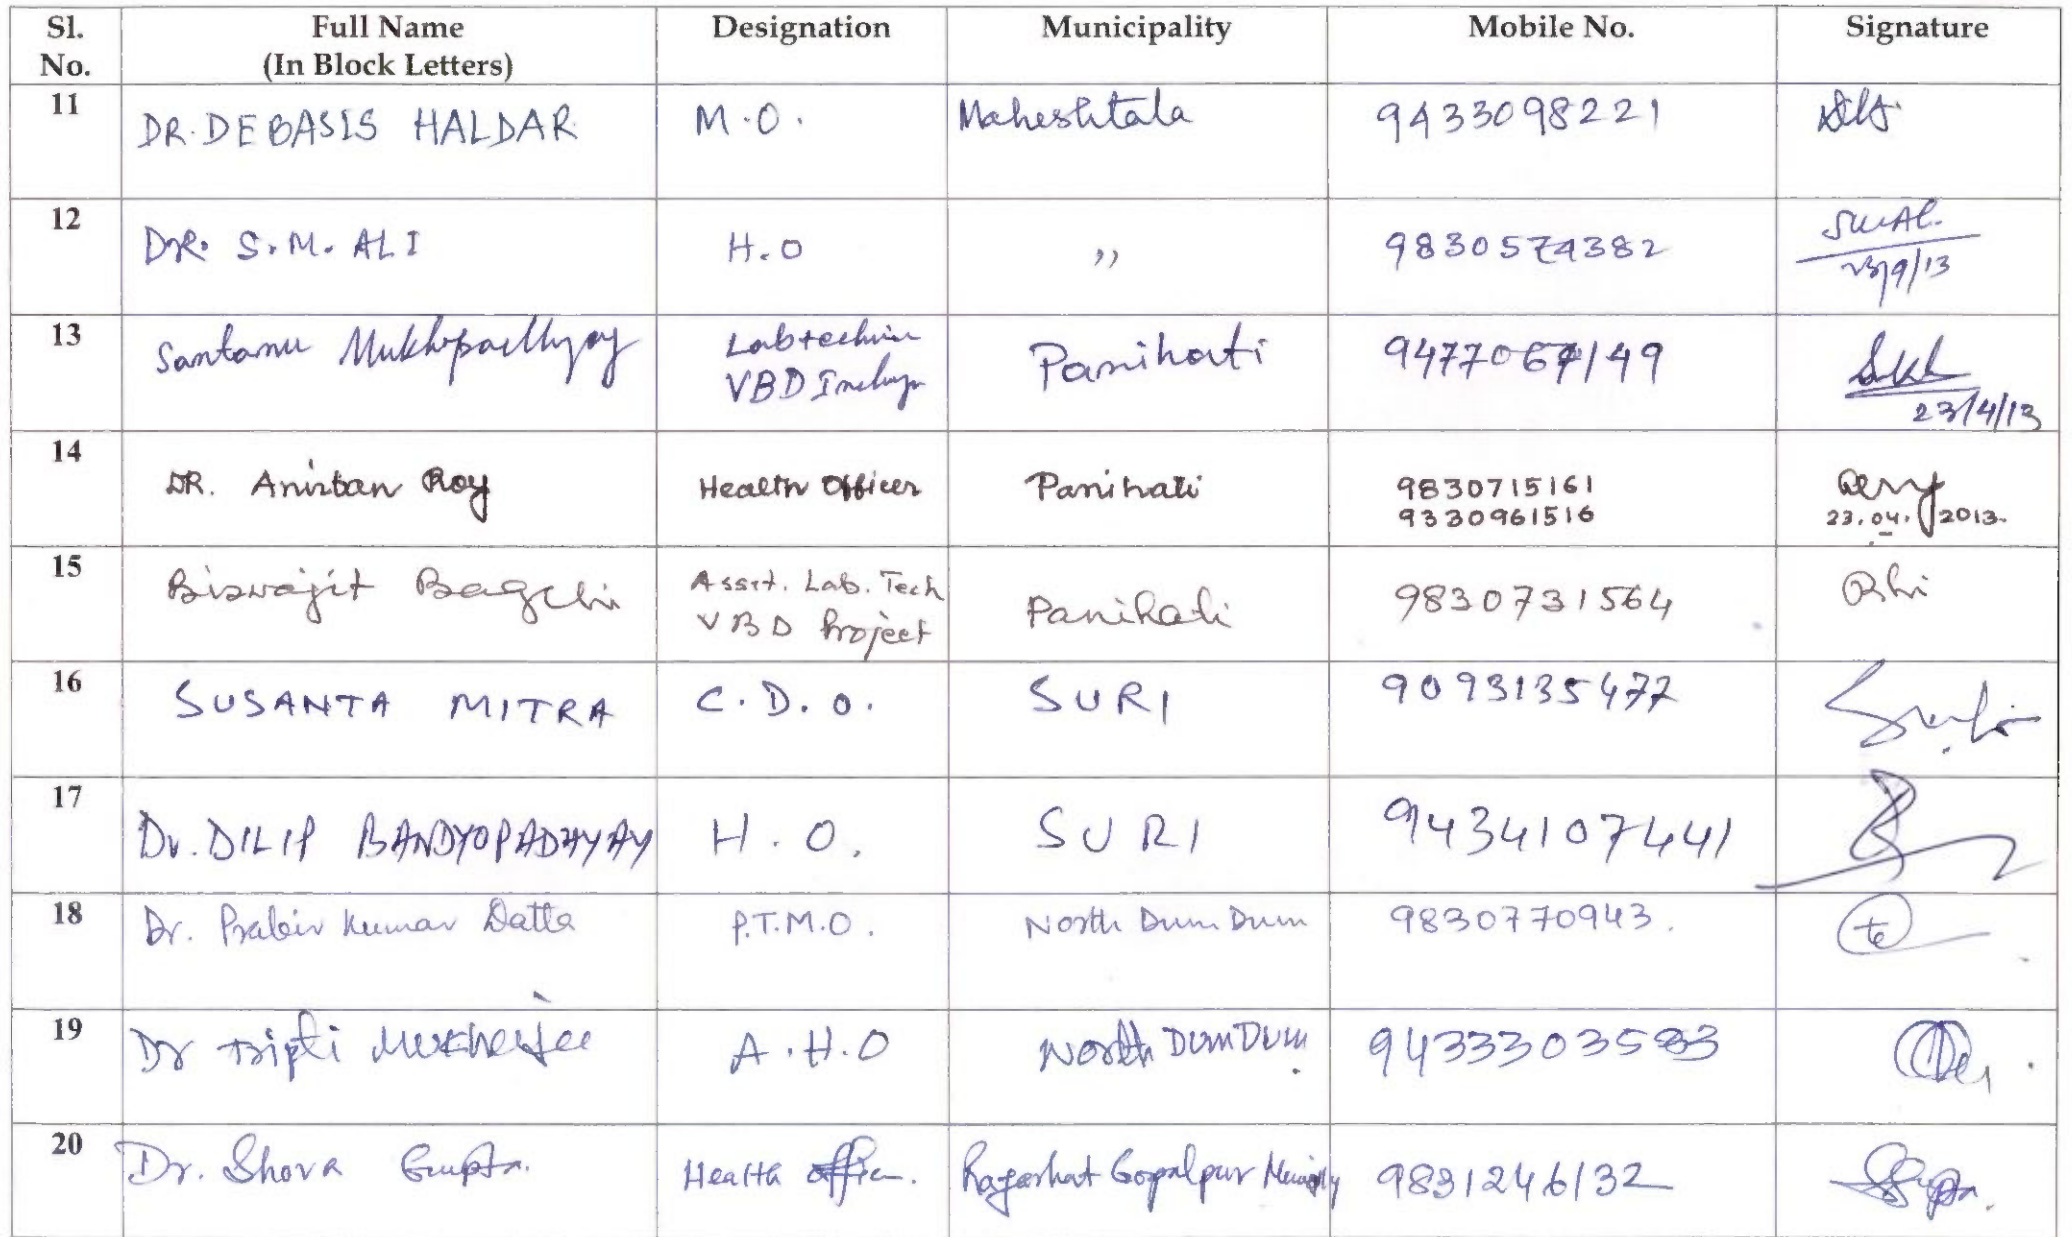 Sl. No. Full Name (In Block Letters) Designation Municipality Mobile No. Signature
11 DR. DEBASIS HALDAR M.O. Maheshtala 9433098221
12 DR. S.M. ALI H.O ,, 9830574382 23/9/13
13 Santanu Mukhopadhyay Labtechnician VBD Panihati 23/4/13
14 DR. Anirban Roy Health Officer Panihati 9830715161 9330961516 23.04.2013.
15 Biswajit Bagchi Asst. Lab. Tech VBD Project Panihati 9830731564
16 SUSANTA MITRA C.D.O. SURI 9093135477
17 Dr. DILIP BANDYOPADHYAY H.O. SURI 9434107441
18 Dr. Prabir Kumar Datta P.T.M.O. North Dum Dum 9830770943.
19 Dr Tripti Mukherjee A.H.O North DUMDUM.
20 Dr. Shova Gupta. Health Officer. Rajarhat Gopalpur 9831246132